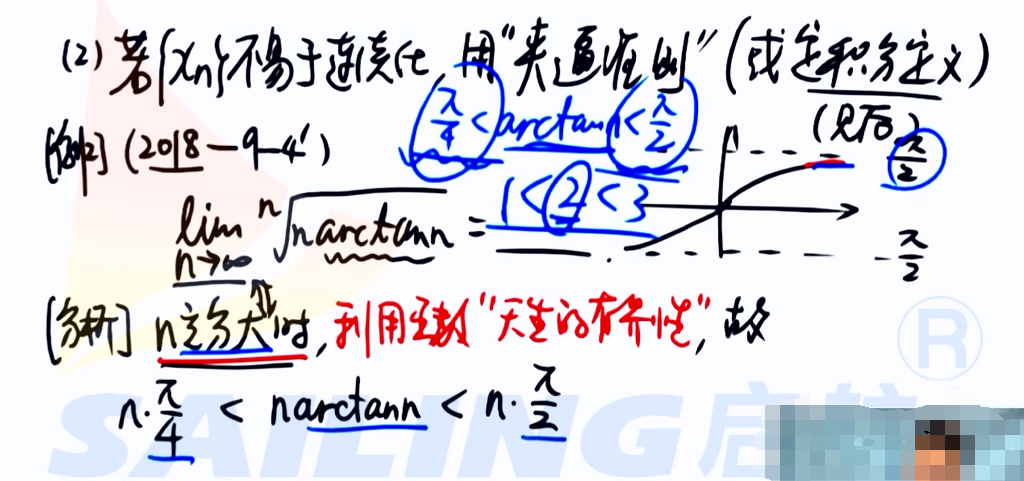 (2) 若{xn}不易于连续化,用"夹逼准则"(或定积分定义)
(见后)
π/4 < arctann < π/2
[例2] (2018-9-4')
1<2<3
π/2
lim n→∞ ⁿ√(narctann) =
-π/2
[分析] n充分大时,利用函数"天生的有界性",故
n·π/4 < narctann < n·π/2
SAILING启航
®